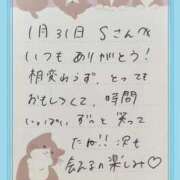 1月31日 Sさんへ
いつも ありがとう!
相変わらず、とっても
おもしろくて、時間
いっぱい ずっと 笑って
たね!! 次も
会えるの楽しみ♡